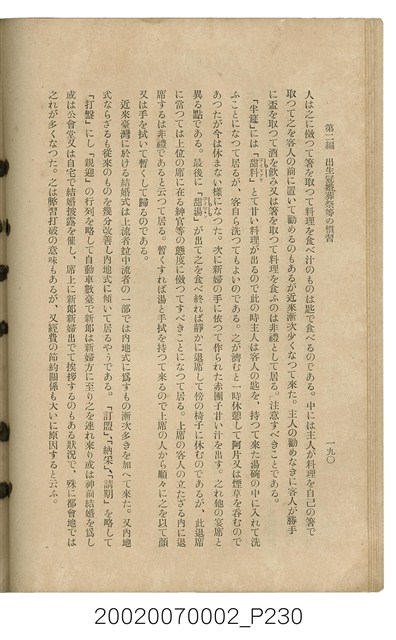 第二編 出生冠婚葬祭等の慣習 一九〇
人は之に傚つて箸を取つて料理を食べ汁のものは匙で食べるのである。中には主人が料理を自己の箸で
取つて之を客人の前に置いて勸めるのもあるが近來漸次少くなつて來た。主人の勸めなきに客人が勝手
に盃を取つて酒を飮み又は箸を取つて料理を食ふのは非禮として居る。注意すべきことである。
「半筵」には「甜料」とて甘い料理が出るので此の時主人は客人の匙を、持つて來た湯碗の中に入れて洗
ふことになつて居るが、客自ら洗つてもよいのである。之が濟むと一時休憩して阿片又は煙草を呑むので
あつたが今は休まない樣になつた。次に新婦の手に依つて作られた赤團子甘い汁を出す。之れ他の宴席と
異る點である。最後に「甜湯」が出て之を食べ終れば靜かに退席して傍の椅子に休むのであるが、此退席
に當つては上位の席に在る紳官等の態度に傚つてすべきことになつて居る。上席の客人の立たざる内に退
席するは非禮であると云つて居る。暫くすれば湯と手拭を持つて來るので上席の人から順々に之を以て顏
又は手を拭いて暫くして歸るのである。
近來臺灣に於ける結婚式は上流者竝中流者の一部では内地式に爲すもの漸次多きを加へて來た。又内地
式ならざるも從來のものを幾分改善し内地式に傾いて居るやうである。「訂盟」、「納采」、「請期」を略して
「打盤」にし「親迎」の行列を略して自動車數臺で新郎は新婦方に至り之を連れ來り或は神前結婚を爲し
或は公會堂又は自宅で結婚披露を催し、席上に新郎新婦出でて挨拶するのもある狀況で、殊に都會地では
之れが多くなつた。之は弊習打破の意味もあるが、又經費の節約關係も大いに原因すると云ふ。
20020070002_P230